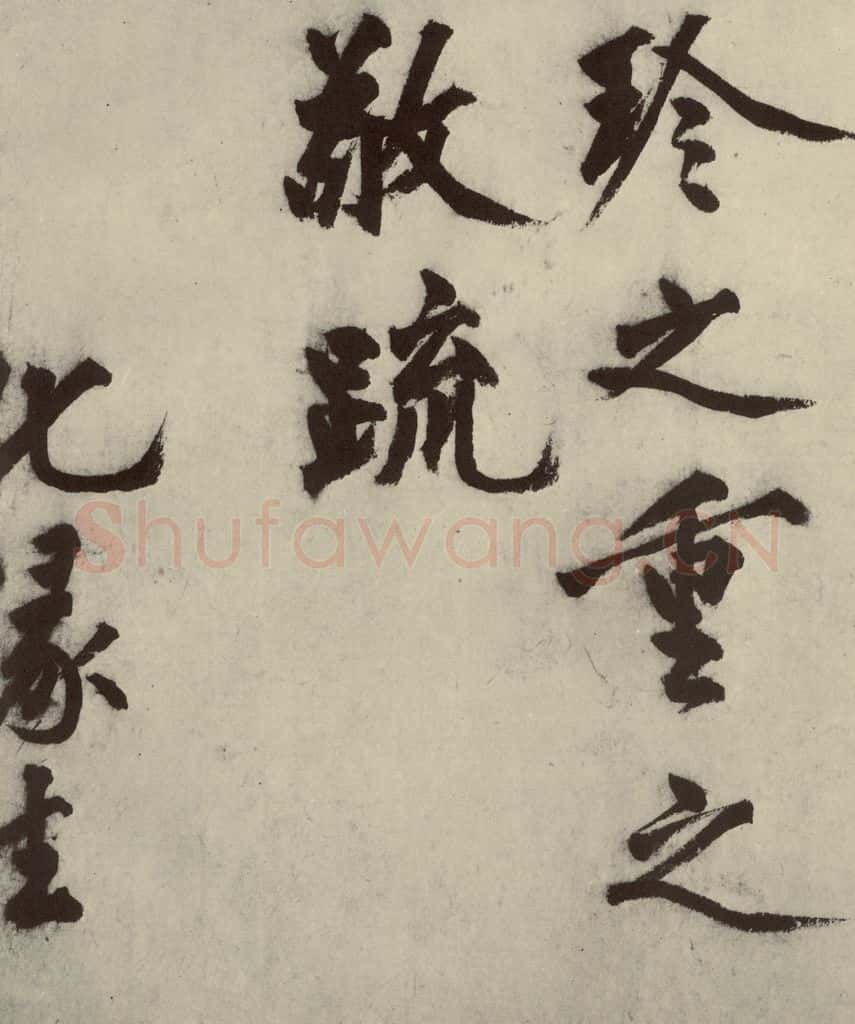 珍之重之
敬疏
化緣主
Shufawang.CN